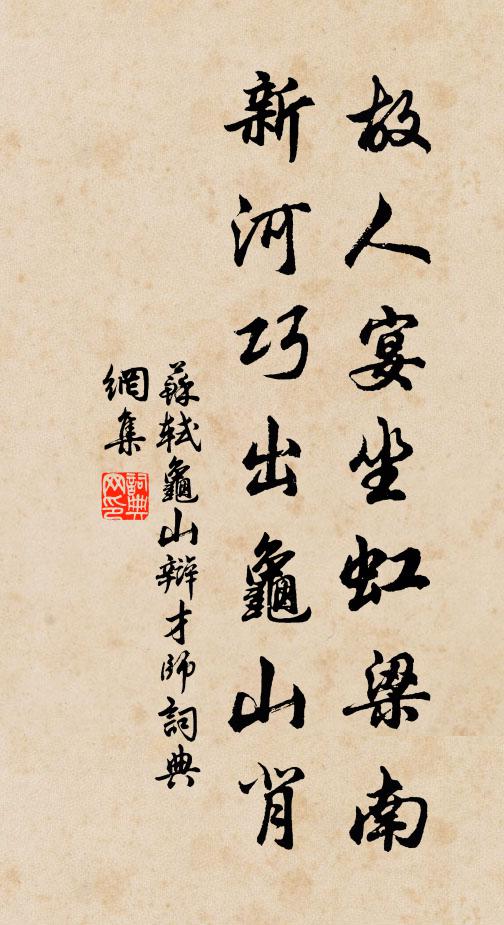 故人宴坐虹梁南
新河巧出龜山背
蘇軾龜山辯才師詞典
網集
詞典
网印